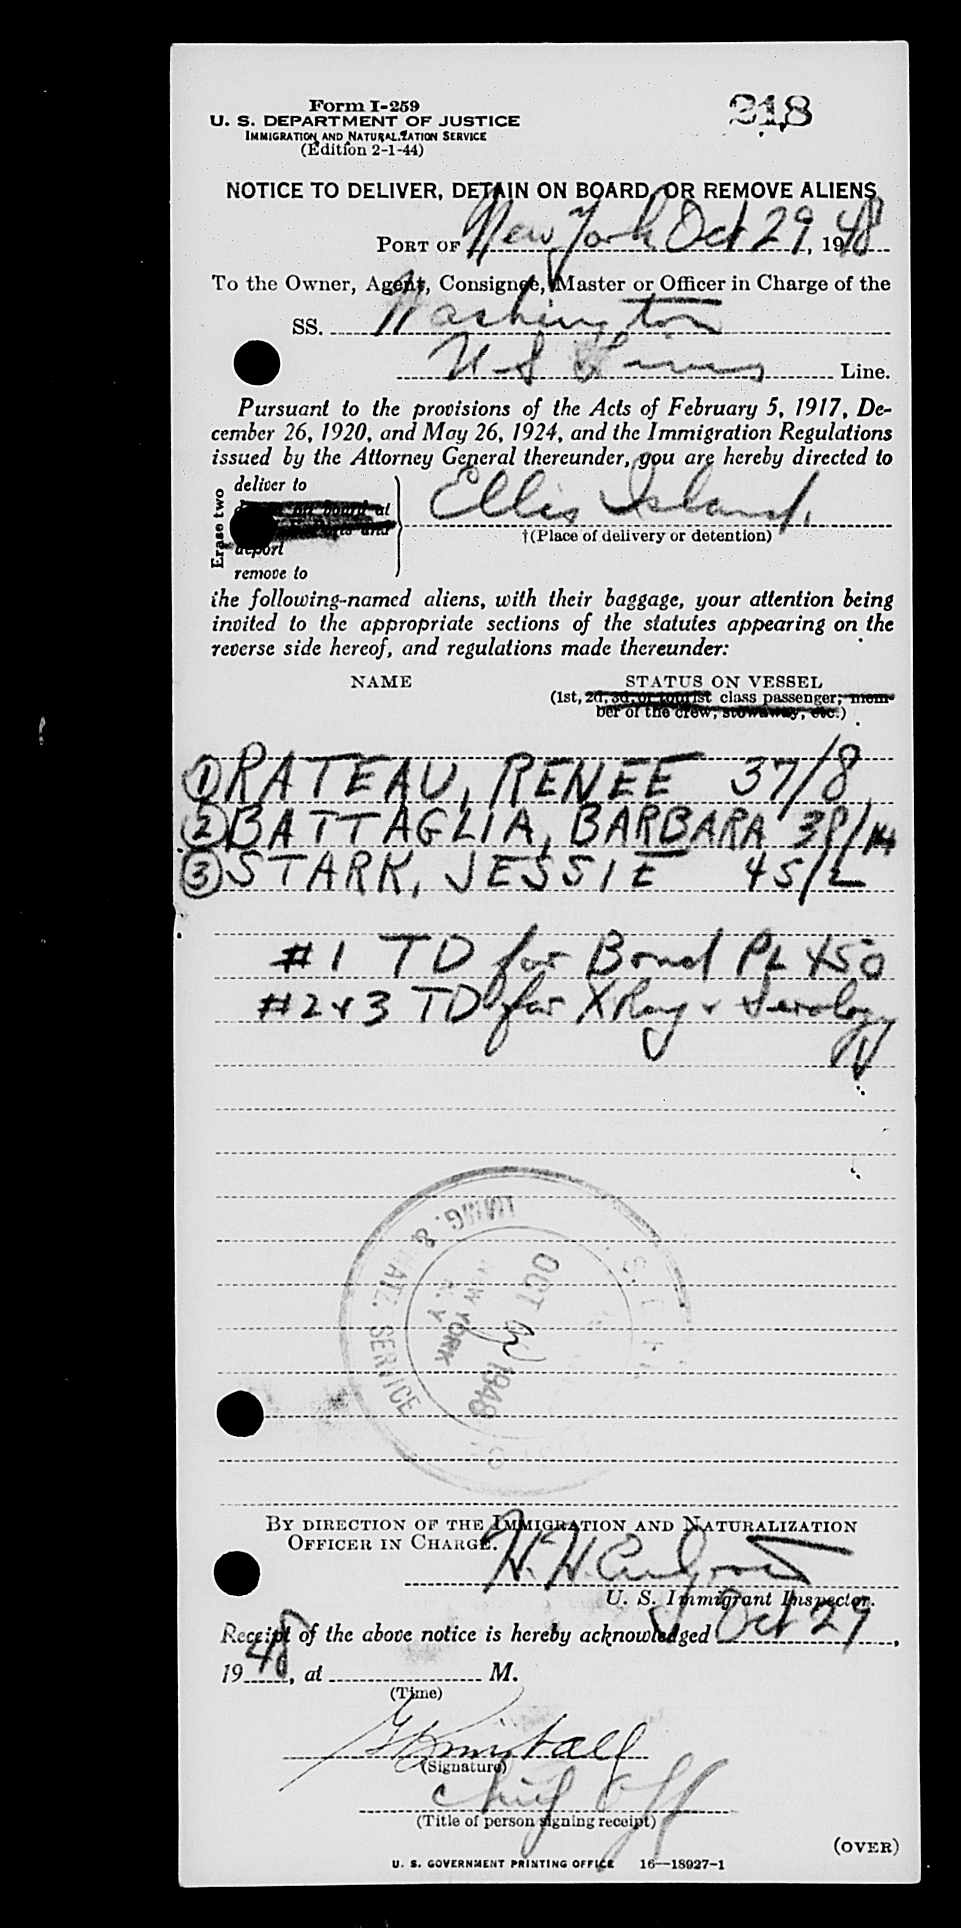 Form I-259
218
U. S. DEPARTMENT OF JUSTICE
IMMIGRATION AND NATURALIZATION SERVICE
(Edition 2-1-44)
NOTICE TO DELIVER, DETAIN ON BOARD, OR REMOVE ALIENS
PORT OF New York Oct 29, 1948
To the Owner, Agent, Consignee, Master or Officer in Charge of the
SS. Washington
U S Lines Line.
Pursuant to the provisions of the Acts of February 5, 1917, De-
cember 26, 1920, and May 26, 1924, and the Immigration Regulations
issued by the Attorney General thereunder, you are hereby directed to
Erase two
deliver to
on board at
and
deport
remove to
Ellis Island.
†(Place of delivery or detention)
the following-named aliens, with their baggage, your attention being
invited to the appropriate sections of the statutes appearing on the
reverse side hereof, and regulations made thereunder:
NAME STATUS ON VESSEL
(1st, 2d, 3d, or tourist class passenger; mem-
ber of the crew, stowaway, etc.)
① RATEAU, RENEE 37/8
② BATTAGLIA, BARBARA 38/14
③ STARK, JESSIE 45/2
#1 TD for Bond PL 450
#2 & 3 TD for XRay & Serology
IMMIG. & NATZ. SERVICE
NEW YORK
N. Y.
OCT 1948
BY DIRECTION OF THE IMMIGRATION AND NATURALIZATION
OFFICER IN CHARGE.
H. H.
U. S. Immigrant Inspector.
Receipt of the above notice is hereby acknowledged Oct 29,
1948, at M.
(Time)
Kimball
(Signature)
Chief Off
(Title of person signing receipt)
(OVER)
U. S. GOVERNMENT PRINTING OFFICE 16—18927-1